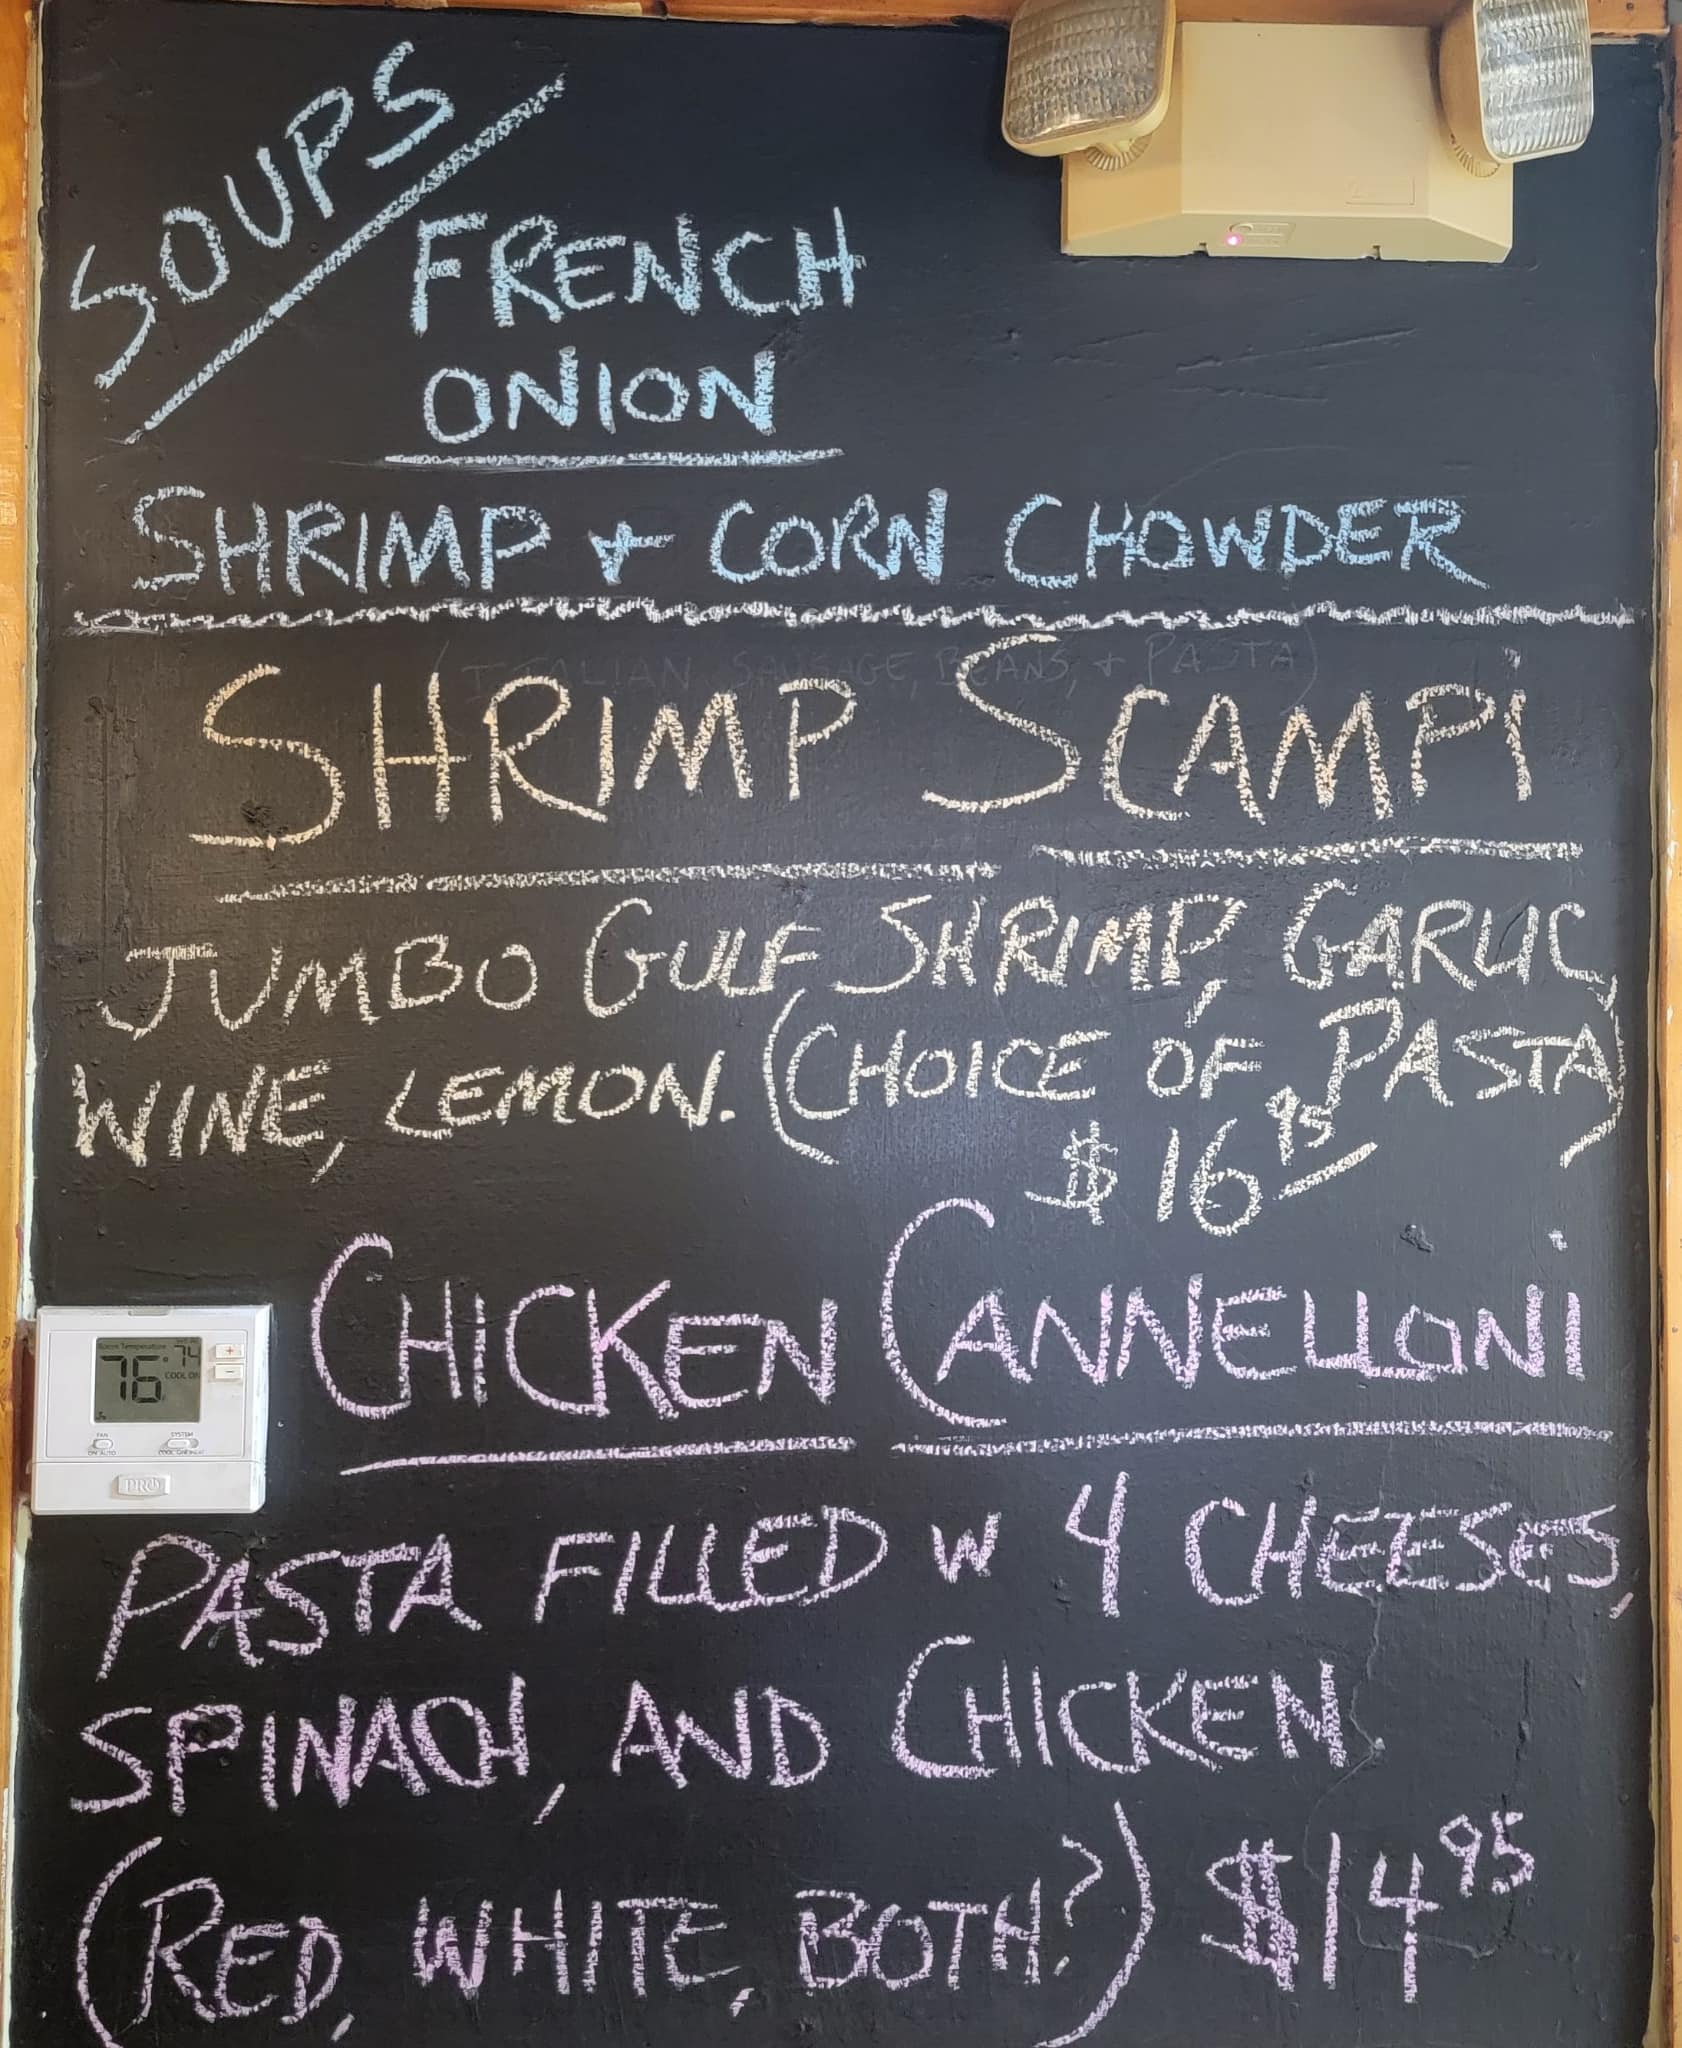 SOUPS
FRENCH
ONION
SHRIMP + CORN CHOWDER
(ITALIAN SAUSAGE, BEANS, + PASTA)
SHRIMP SCAMPI
JUMBO GULF SHRIMP, GARLIC,
WINE, LEMON. (CHOICE OF PASTA)
$16.95
CHICKEN CANNELLONI
Room Temperature
76° 74
COOL ON
+
-
FAN
ON AUTO
SYSTEM
COOL OFF HEAT
PRO
PASTA FILLED W 4 CHEESES,
SPINACH, AND CHICKEN
(RED, WHITE, BOTH?) $14 95